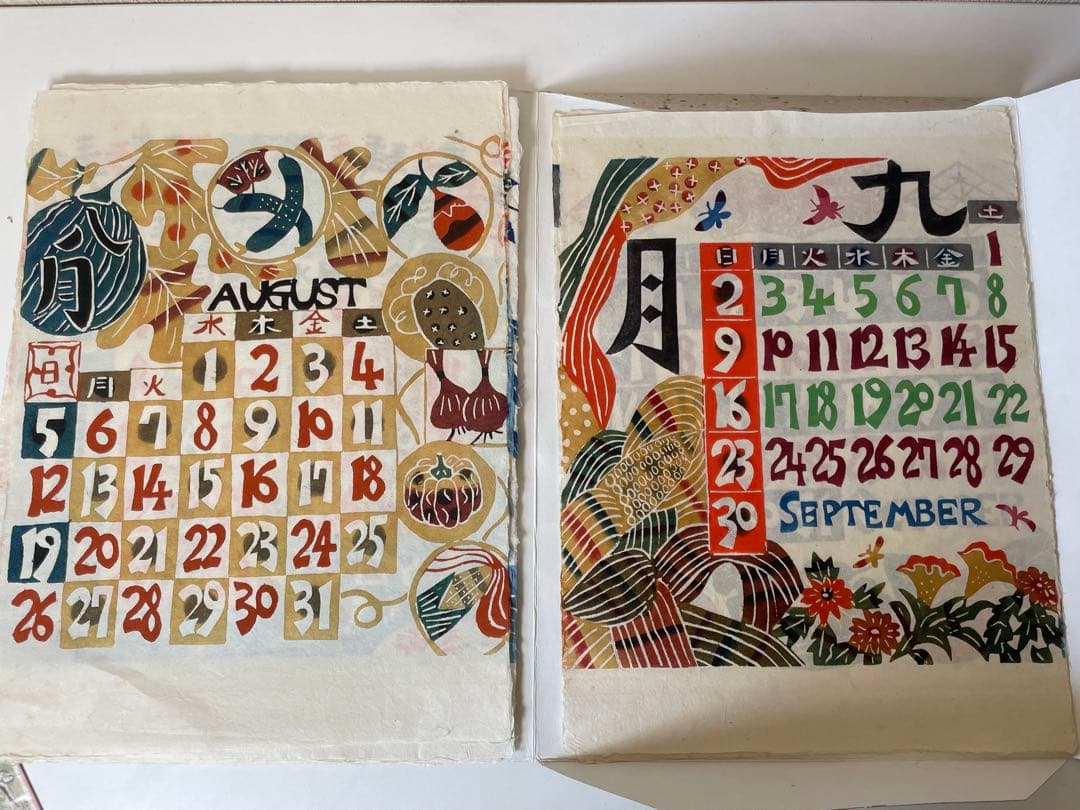 八月
AUGUST
水 木 金 土
日 月 火 1 2 3 4
5 6 7 8 9 10 11
12 13 14 15 16 17 18
19 20 21 22 23 24 25
26 27 28 29 30 31
九月
日 月 火 水 木 金 土
1
2 3 4 5 6 7 8
9 10 11 12 13 14 15
16 17 18 19 20 21 22
23 24 25 26 27 28 29
30 SEPTEMBER